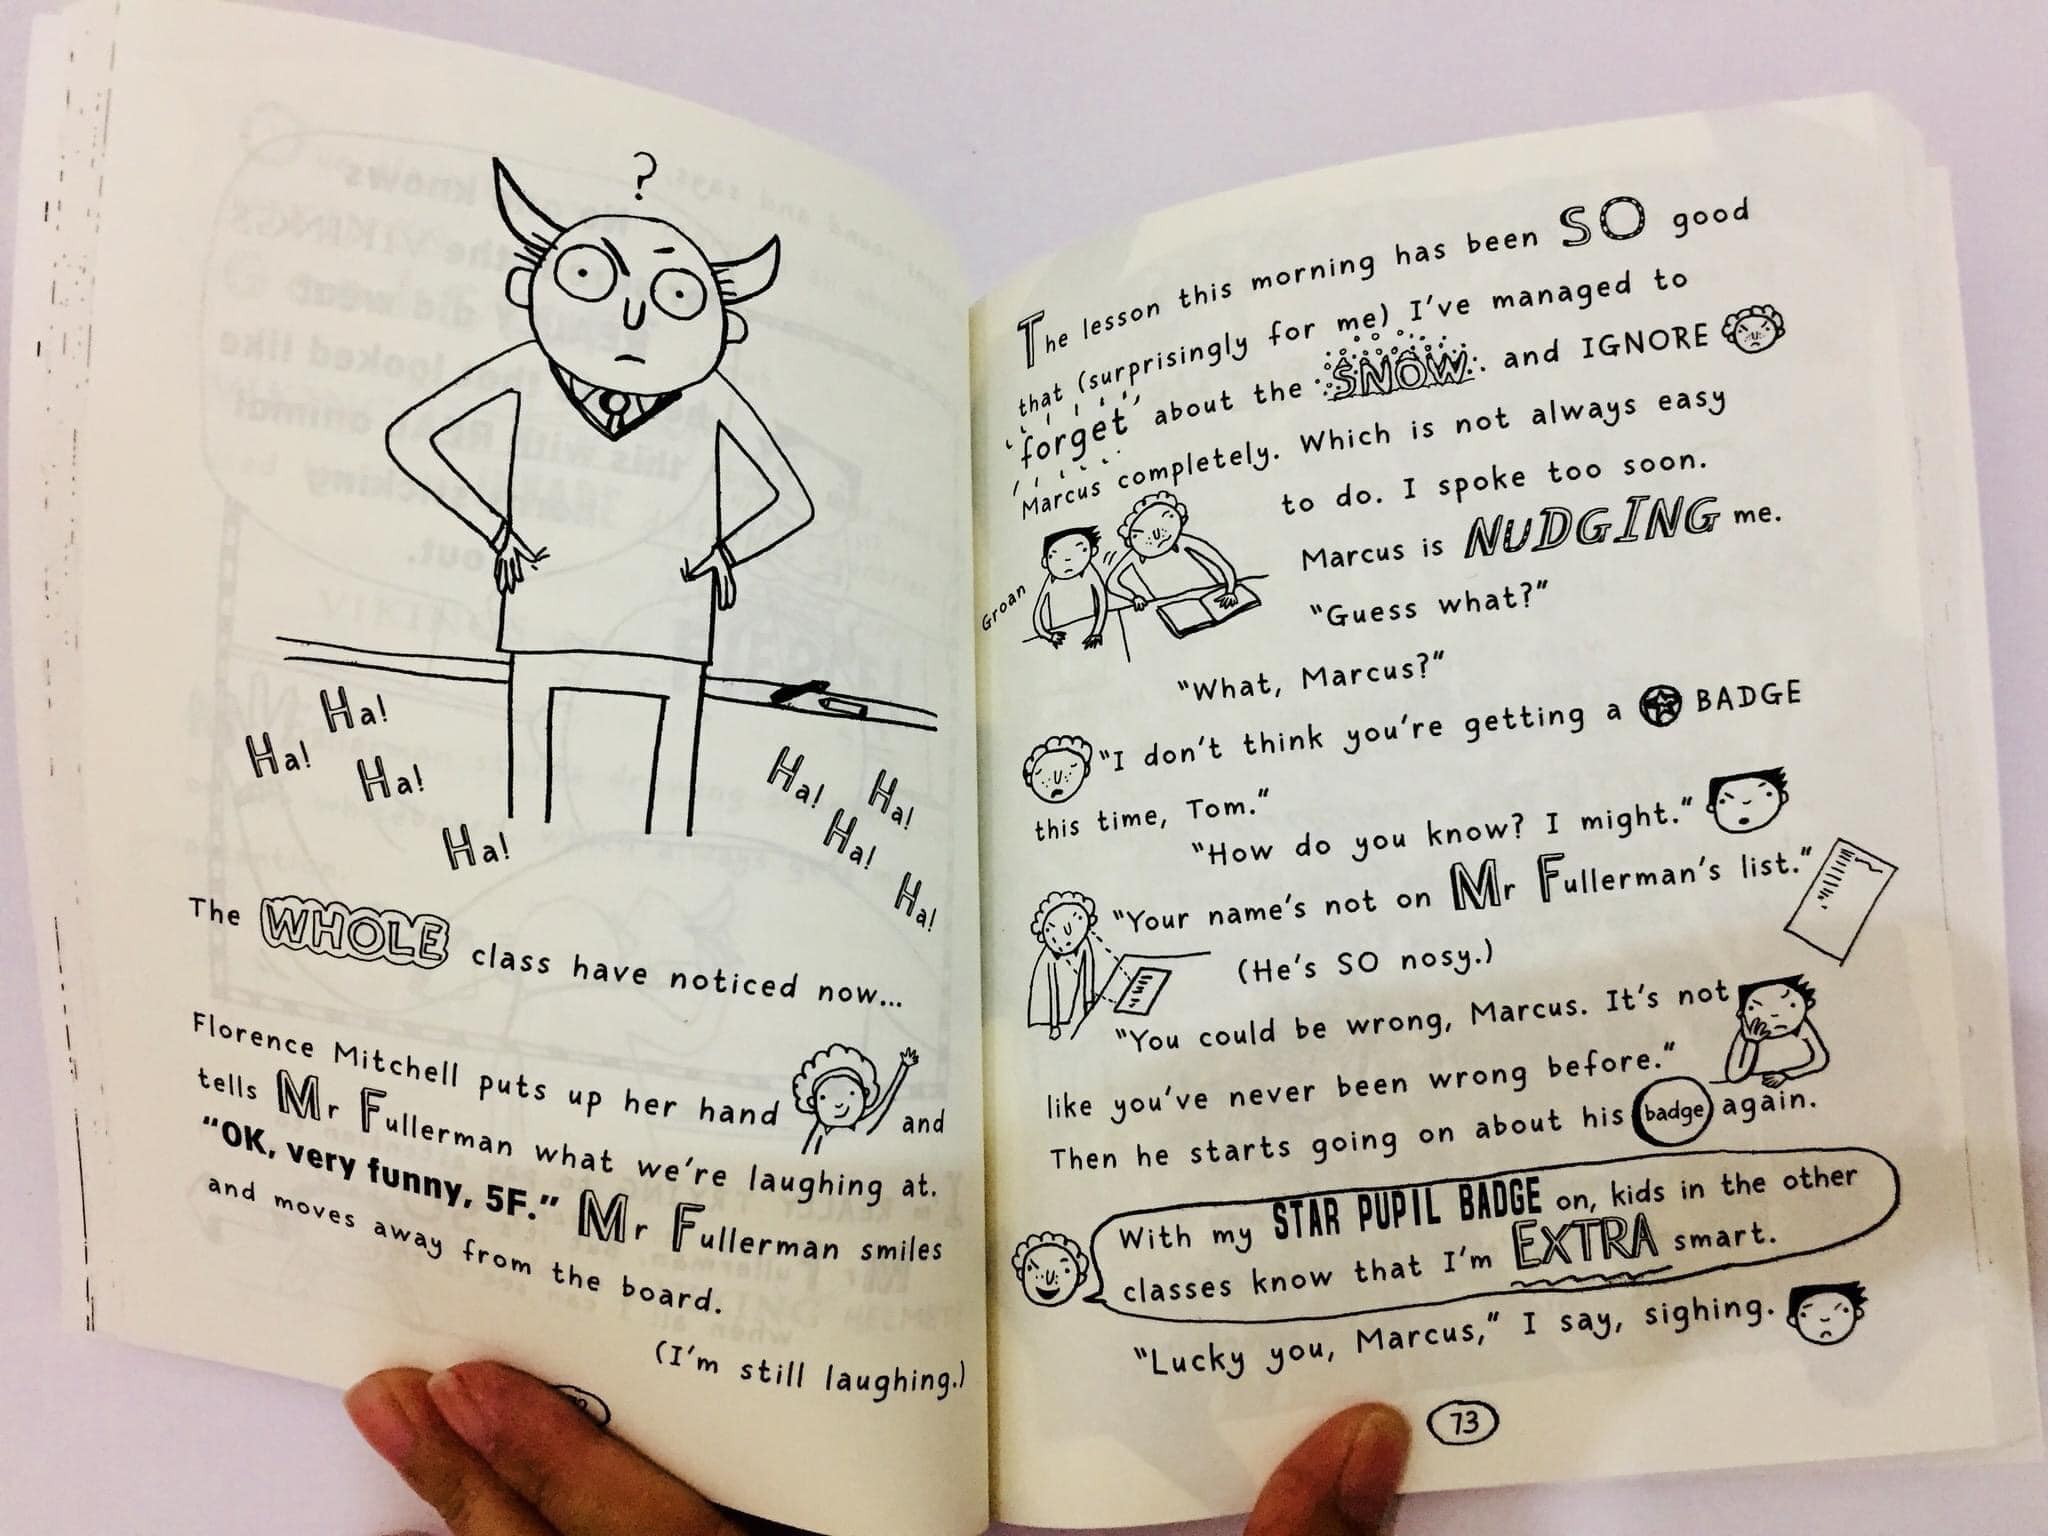 ?
Ha!
Ha!
Ha!
Ha!
Ha!
Ha!
Ha!
Ha!
The WHOLE class have noticed now...
Florence Mitchell puts up her hand and
tells Mr Fullerman what we're laughing at.
"OK, very funny, 5F." Mr Fullerman smiles
and moves away from the board.
(I'm still laughing.)
The lesson this morning has been SO good
that (surprisingly for me) I've managed to
forget about the SNOW and IGNORE
Marcus completely. Which is not always easy
to do. I spoke too soon.
Marcus is NUDGING me.
Groan
"Guess what?"
"What, Marcus?"
"I don't think you're getting a BADGE
this time, Tom."
"How do you know? I might."
"Your name's not on Mr Fullerman's list."
(He's SO nosy.)
"You could be wrong, Marcus. It's not
like you've never been wrong before."
Then he starts going on about his badge again.
With my STAR PUPIL BADGE on, kids in the other
classes know that I'm EXTRA smart.
"Lucky you, Marcus," I say, sighing.
73